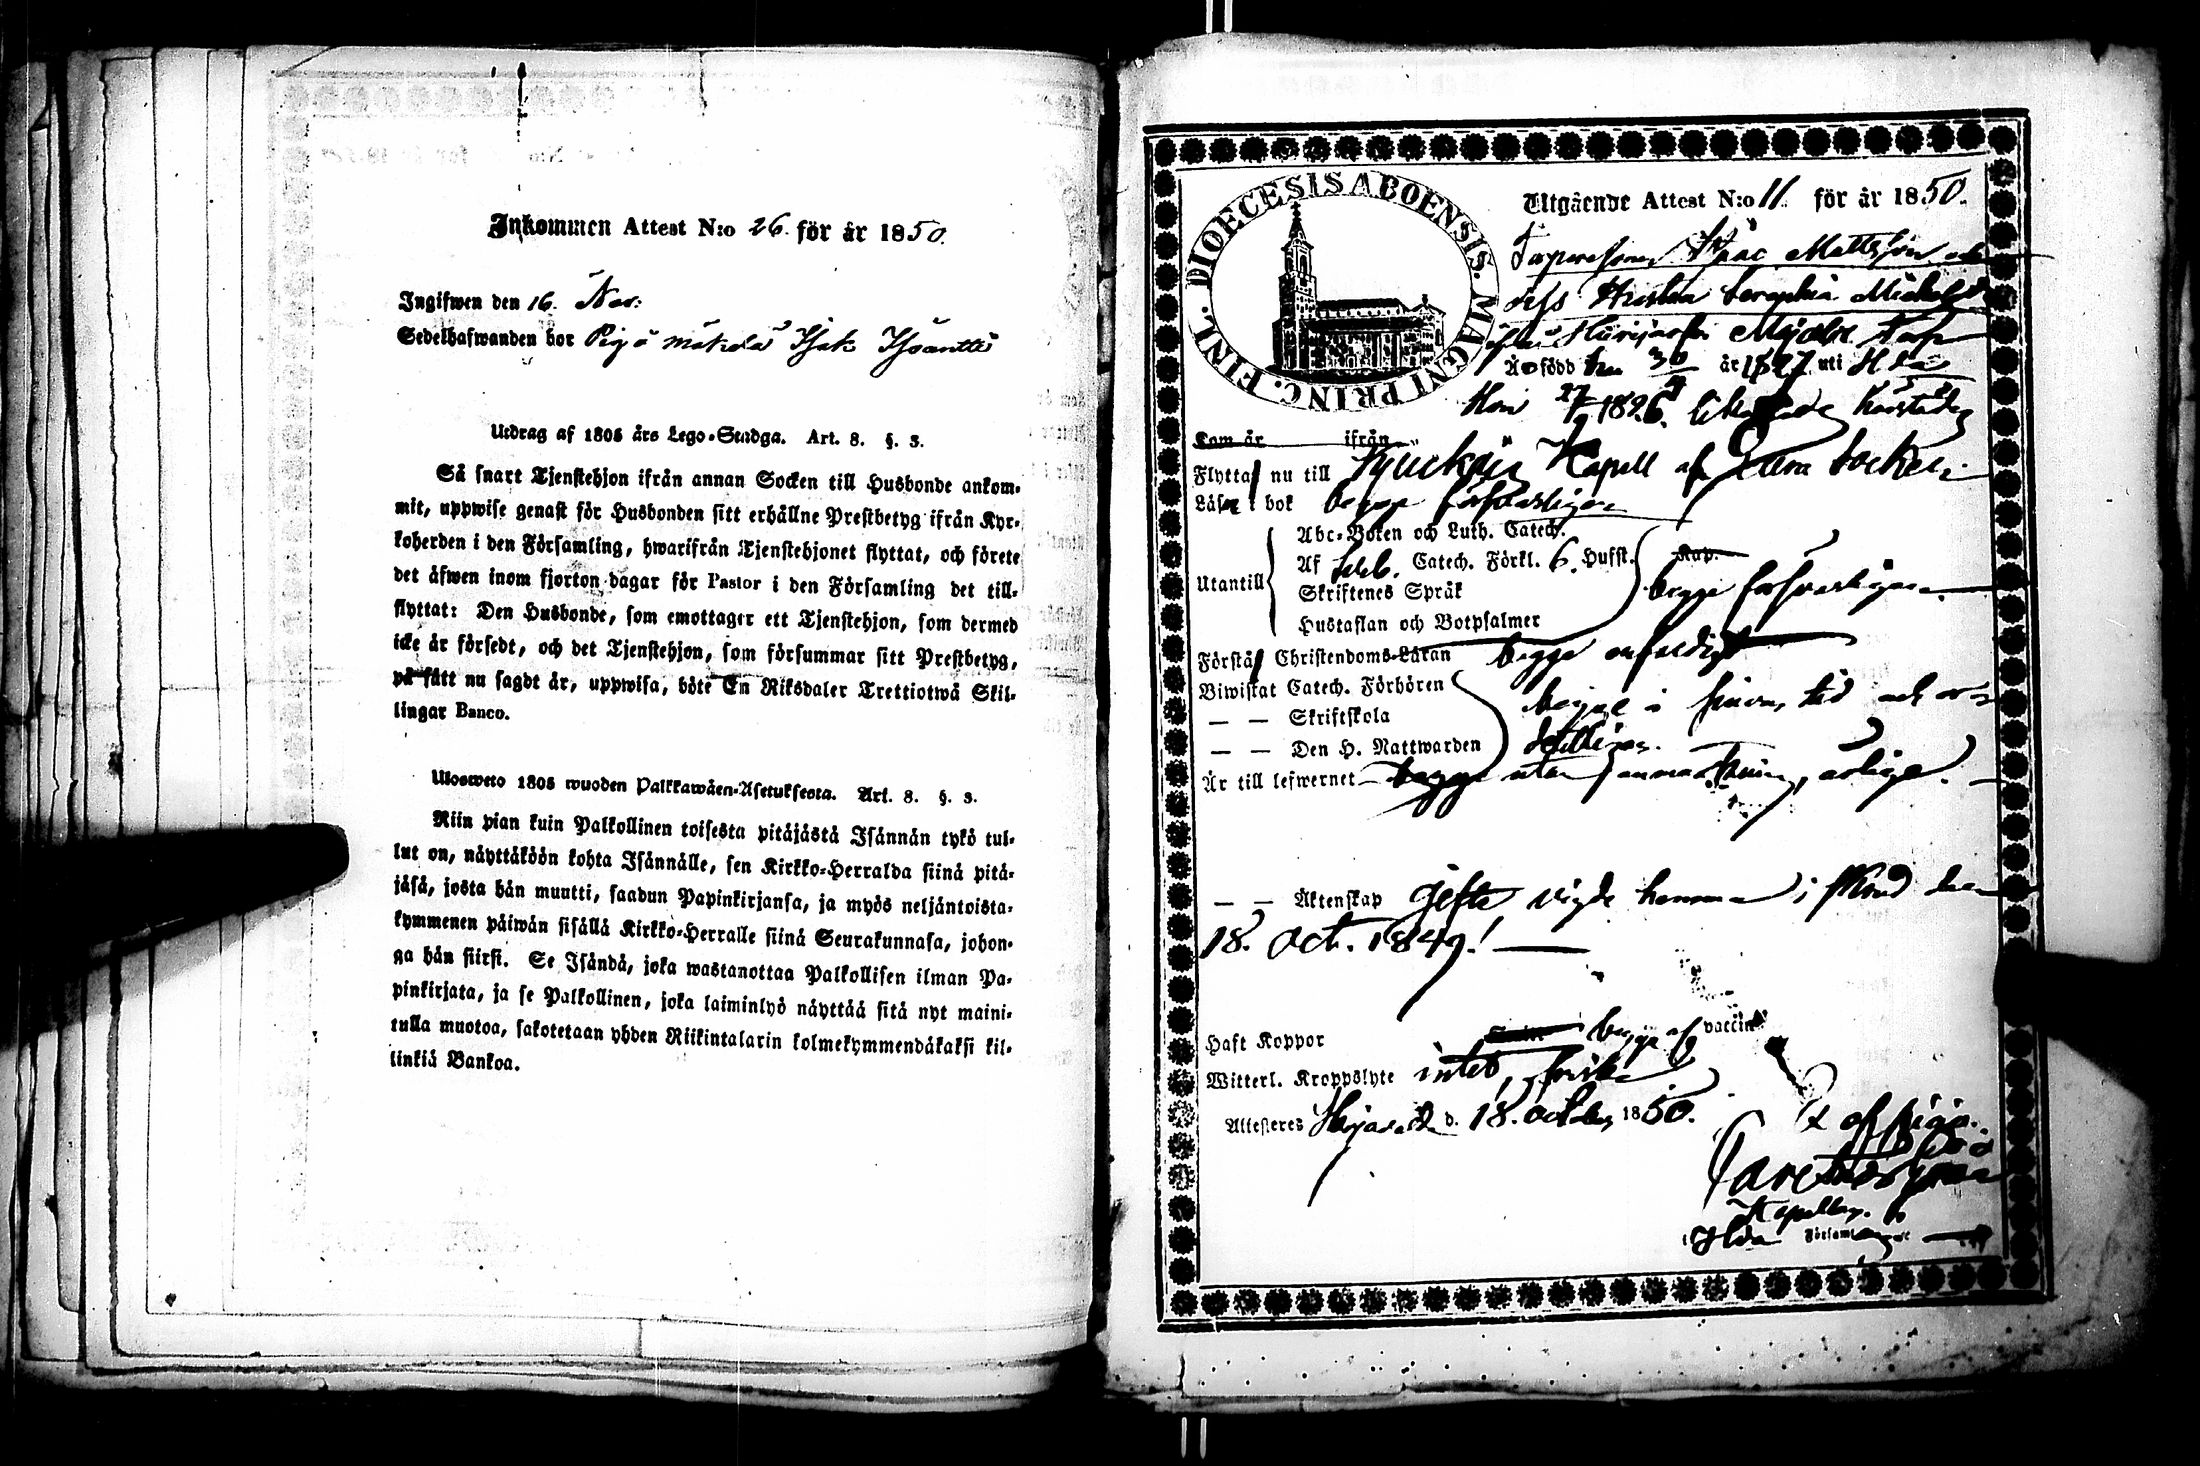 Inkommen Attest N:o 26. för år 1850.
Ingifwen den 16. Nov:
Sedelhafwanden bor
Utdrag af 1805 års Lego-Stadga. Art. 8. §. 3.
Så snart Tjenstehjon ifrån annan Socken till Husbonde ankom-
mit, uppwise genast för Husbonden sitt erhållne Prestbetyg ifrån Kyr-
koherden i den Församling, hwarifrån Tjenstehjonet flyttat, och förete
det äfwen inom fjorton dagar för Pastor i den Församling det till-
flyttat: Den Husbonde, som emottager ett Tjenstehjon, som dermed
icke är försedt, och det Tjenstehjon, som försummar sitt Prestbetyg,
på sätt nu sagdt är, uppwisa, böte En Riksdaler Trettiotwå Skil-
lingar Banco.
Ulosweto 1805 wuoden Palkkawäen-Asetuksesta. Art. 8. §. 3.
Niin pian kuin Palkollinen toisesta pitäjästä Isännän tykö tul-
lut on, näyttäköön kohta Isännälle, sen Kirkko-Herralda siinä pitä-
jäsä, josta hän muutti, saadun Papinkirjansa, ja myös neljäntoista-
kymmenen päiwän sisällä Kirkko-Herralle siinä Seurakunnasa, johon-
ga hän siirsi. Se Isändä, joka wastanottaa Palkollisen ilman Pa-
pinkirjata, ja se Palkollinen, joka laiminlyö näyttää sitä nyt maini-
tulla muotoa, sakotetaan yhden Riikintalarin kolmekymmendäkaksi kil-
linkiä Bankoa.
FINL. DIOECESIS ABOENSIS. MAGNI PRINC.
Utgående Attest N:o 11. för år 1850.
Isaac Mattsson och
dess Hustru Seraphia
Är född den 30 år 1827 uti
Hon 27 1826
Kom år ifrån
Flyttar nu till Kjulholm Kapell af Eura Socken.
Läser i bok begge försvarligen
Abc-Boken och Luth. Catech.
Af Seb. Catech. Förkl. 6. Husst. Kap.
Utantill Skriftenes Språk begge försvarligen
Hustaflan och Botpsalmer
Förstår Christendoms-Läran begge enfaldigt
Biwistat Catech. Förhören begge i sinom tid och
— — Skriftskola
— — Den H. Nattwarden
Är till lefwernet begge utan anmärkning, ärlige.
— — Äktenskap gifte vigde den
18. Oct. 1849!
Haft Koppor begge af vaccin
Witterl. Kroppslyte intet, friske
Attesteres d. 18. October 1850.
Ex officio
Församl